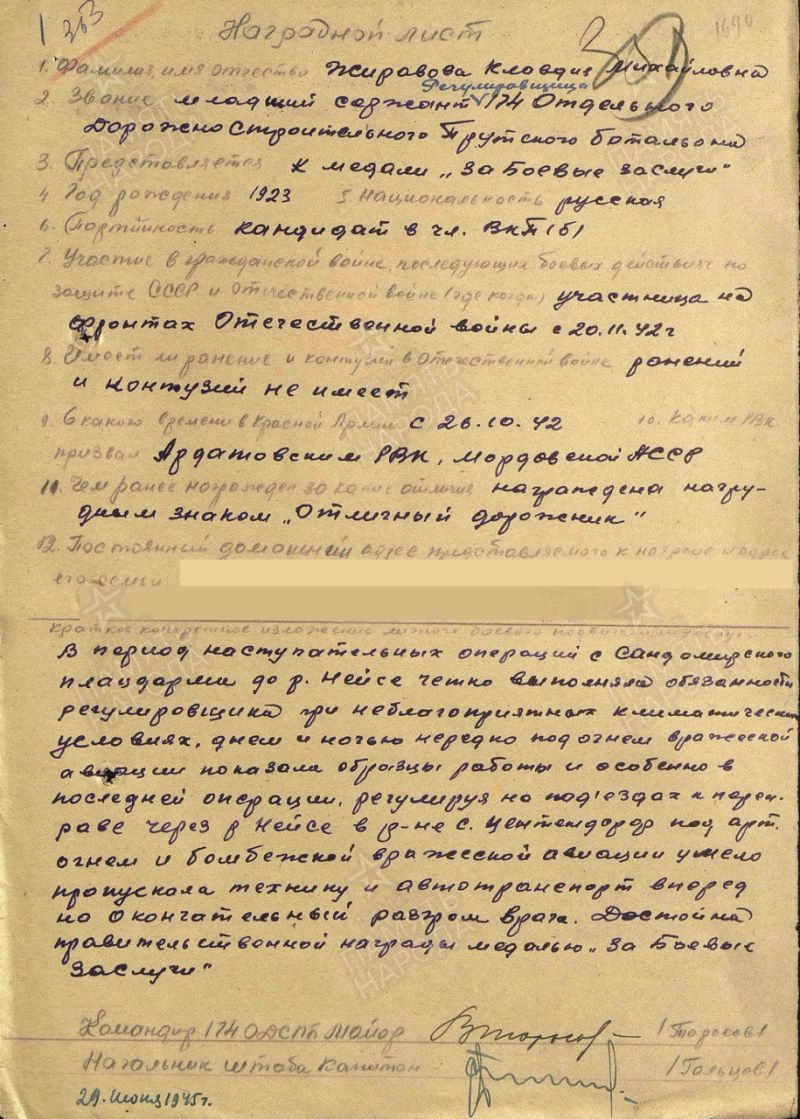 1 363
Наградной лист
1690
1. Фамилия, имя отчество Жиравова Кловдия Михайловна
Регулировщица
2. Звание младший сержант 174 Отдельного
Дорожно Строительного Прутского батальона
3. Представляется к медали „За Боевые заслуги"
4 Год рождения 1923 5 Национальность русская
6. Партийность кандидат в чл. ВКП(б)
7. Участие в гражданской войне, последующих боевых действиях по
защите СССР и Отечественной войне (где когда) участница на
фронтах Отечественной войны с 20.11.42г
8. Имеет ли ранение и контузии в Отечественной войне ранений
и контузий не имеет
9. С какого времени в Красной Армии с 26.10.42 10. Каким РВК
призван Ардатовским РВК, Мордовской АССР
11. Чем ранее награжден за какие отличия награждена нагру-
дным знаком „Отличный дорожник"
12. Постоянный домашний адрес представляемого к награде и адрес
его семьи
Краткое конкретное изложение личного боевого подвига
В период наступательных операций с Сандомирского
плацдарма до р. Нейсе четко выполняла обязанности
регулировщика при неблагоприятных климатических
условиях, днем и ночью нередко под огнем вражеской
авиации показала образцы работы и особенно в
последней операции, регулируя на под'ездах к переп-
раве через р Нейсе в р-не с. Центендорф под арт.
огнем и бомбежкой вражеской авиации умело
пропускала технику и автотранспорт вперед
на окончательный разгром врага. Достойна
правительственной награды медалью „За Боевые
заслуги"
Командир 174 ОДСПБ Майор /Тарасов/
Начальник штаба Капитан /Гальцов/
29. июня 1945г.